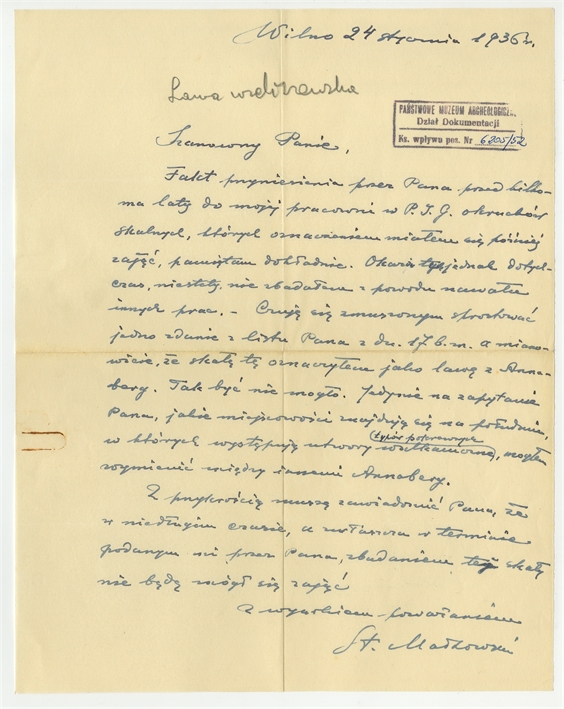 Wilno 24 stycznia 1936 r.
Lawa
PAŃSTWOWE MUZEUM ARCHEOLOGICZNE
Dział Dokumentacji
Ks. wpływu poz. Nr 6205/52
Szanowny Panie,
Fakt przyniesienia przez Pana przed kilko-
ma laty do mojej pracowni w P.I.G. okruchów
skalnych, których oznaczeniem miałem się później
zająć, pamiętam dokładnie. jednak dotych-
czas, niestety, nie zbadałem z powodu nawału
innych prac. – Czuję się zmuszonym sprostować
jedno zdanie z listu Pana z dn. 17 b.m. a miano-
wicie, że skałę tę oznaczyłem jako lawę z Anna-
berg. Tak być nie mogło. Jedynie na zapytanie
Pana, jakie miejscowości znajdują się na południu,
w których występują utwory wulkaniczne, mogłem
wymienić między innemi Annaberg.
Z przykrością muszę zawiadomić Pana, że
w niedługim czasie, a zwłaszcza w terminie
podanym mi przez Pana, zbadaniem tej skały
nie będę mógł się zająć
Z wysokiem poważaniem
St. Małkowski